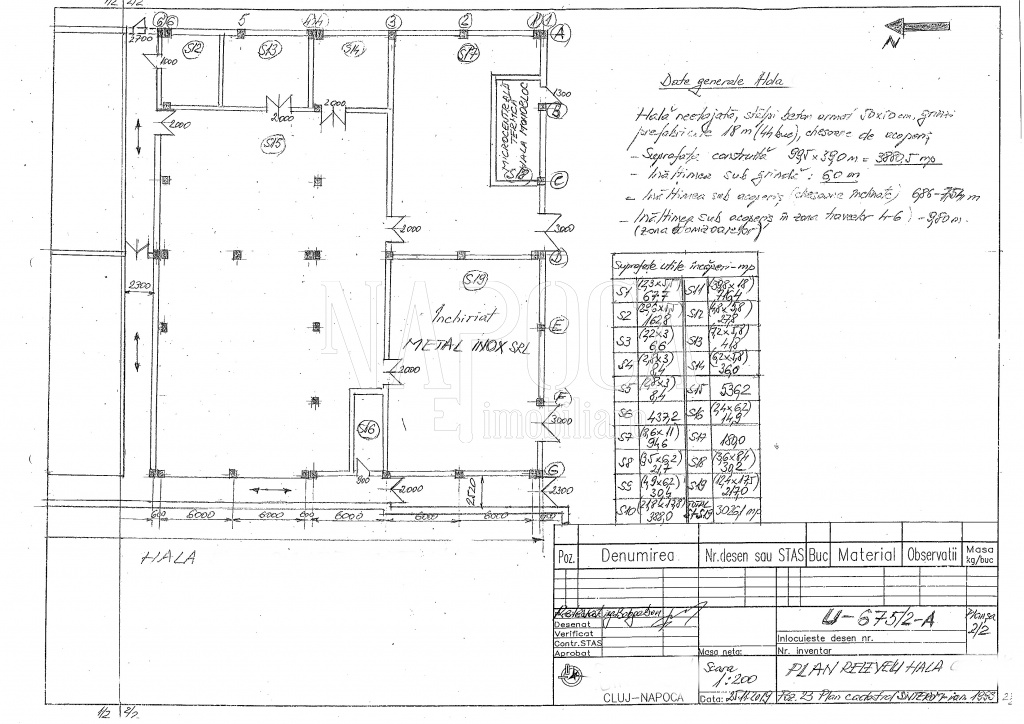 1/2 2/2
6 6 5 4 4 3 2 1 1 A
2700
1000
S12 S13 S14 S17
N
Date generale Hala
Hală neetajată, stâlpi beton armat 50x70 cm, grinzi
prefabricate 18 m (44 buc), chesoane de acoperiș
- Suprafața construită 99,5 x 39,0 m = 3880,5 mp
- Înălțimea sub grindă: 6,0 m
- Înălțimea sub acoperiș (chesoane înclinate) 6,86-7,54 m
- Înălțimea sub acoperiș în zona travelor 4-6 - 9,80 m.
(zona atomizoarelor)
1300
B
MICROCENTRALĂ
TERMICĂ
HALA MONOBLOC
(S18)
2000 2000 2000
S15
C
2000 3000
D
2300
S19
Închiriat
METAL INOX SRL
E
2000
F
3000
S16
G
900 2000 2520 2300
600 6000 6000 600 6000 6000 6000
HALA
NAPOCA
imobiliare
Suprafețe utile încăperi - mp
S1 67,7 S11 (39,8 x 18) 716,4
S2 162,8 S12 (4,8 x 5,8) 27,8
S3 (2,2 x 3) 6,6 S13 (7,2 x 5,8) 41,8
S4 (2,8 x 3) 8,4 S14 (6,2 x 5,8) 36,0
S5 (2,8 x 3) 8,4 S15 536,2
S6 437,2 S16 (2,4 x 6,2) 14,9
S7 (8,6 x 11) 94,6 S17 180,0
S8 (3,5 x 6,2) 21,7 S18 (3,6 x 8,4) 30,2
S9 (4,9 x 6,2) 30,4 S19 (12,4 x 17,5) 217,0
S10 (21,8 x 17,8) 388,0 TOTAL S1-S19 3026,1 mp
Poz. Denumirea Nr.desen sau STAS Buc Material Observatii Masa kg/buc
Desenat
Verificat
Contr.STAS
Aprobat
Masa neta:
U-675/2-A
Planșa 2/2
Inlocuieste desen nr.
Nr. inventar
CLUJ-NAPOCA
Scara
1:200
Data:
PLAN RELEVEU HALA C
Poz. 23 Plan cadastral SINTEROM
1/2 2/2